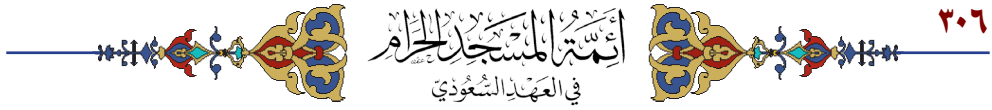 ٣٠٦
أَئِمَّةُ المَسْجِدِ الحَرَامِ
فِي العَهْدِ السُّعُودِيّ